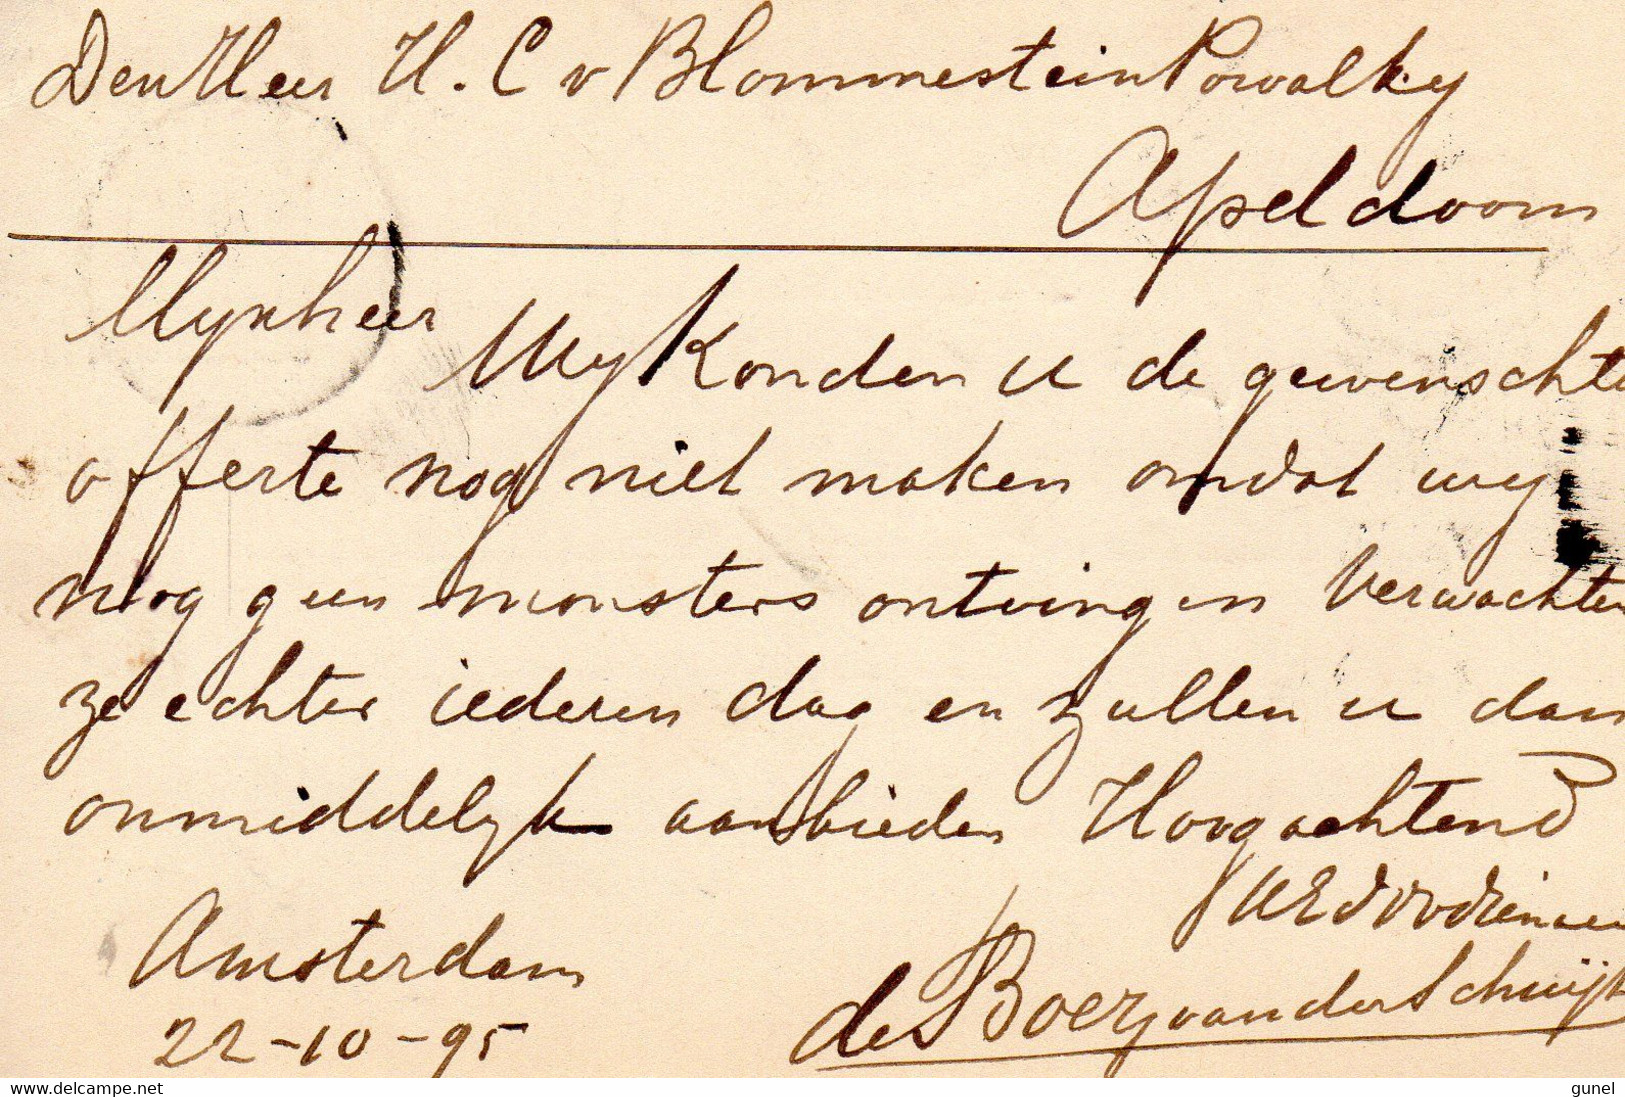 Den Heer H. C v Blommestein Powalky
Apeldoorn
Mynheer
Wy konden u de gewenschte
offerte nog niet maken omdat wy
nog geen monsters ontvingen Verwachten
ze echter iederen dag en zullen u dan
onmiddelyk aanbieden Hoogachtend
UEd
Amsterdam
de Boer & van der Schuijt
22-10-95
www.delcampe.net
gunel